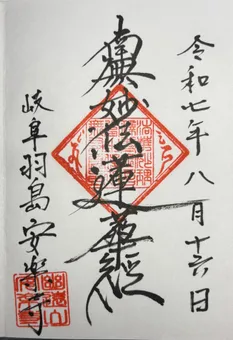 令和七年八月十六日
南無妙法蓮華経
岐阜羽島安楽寺